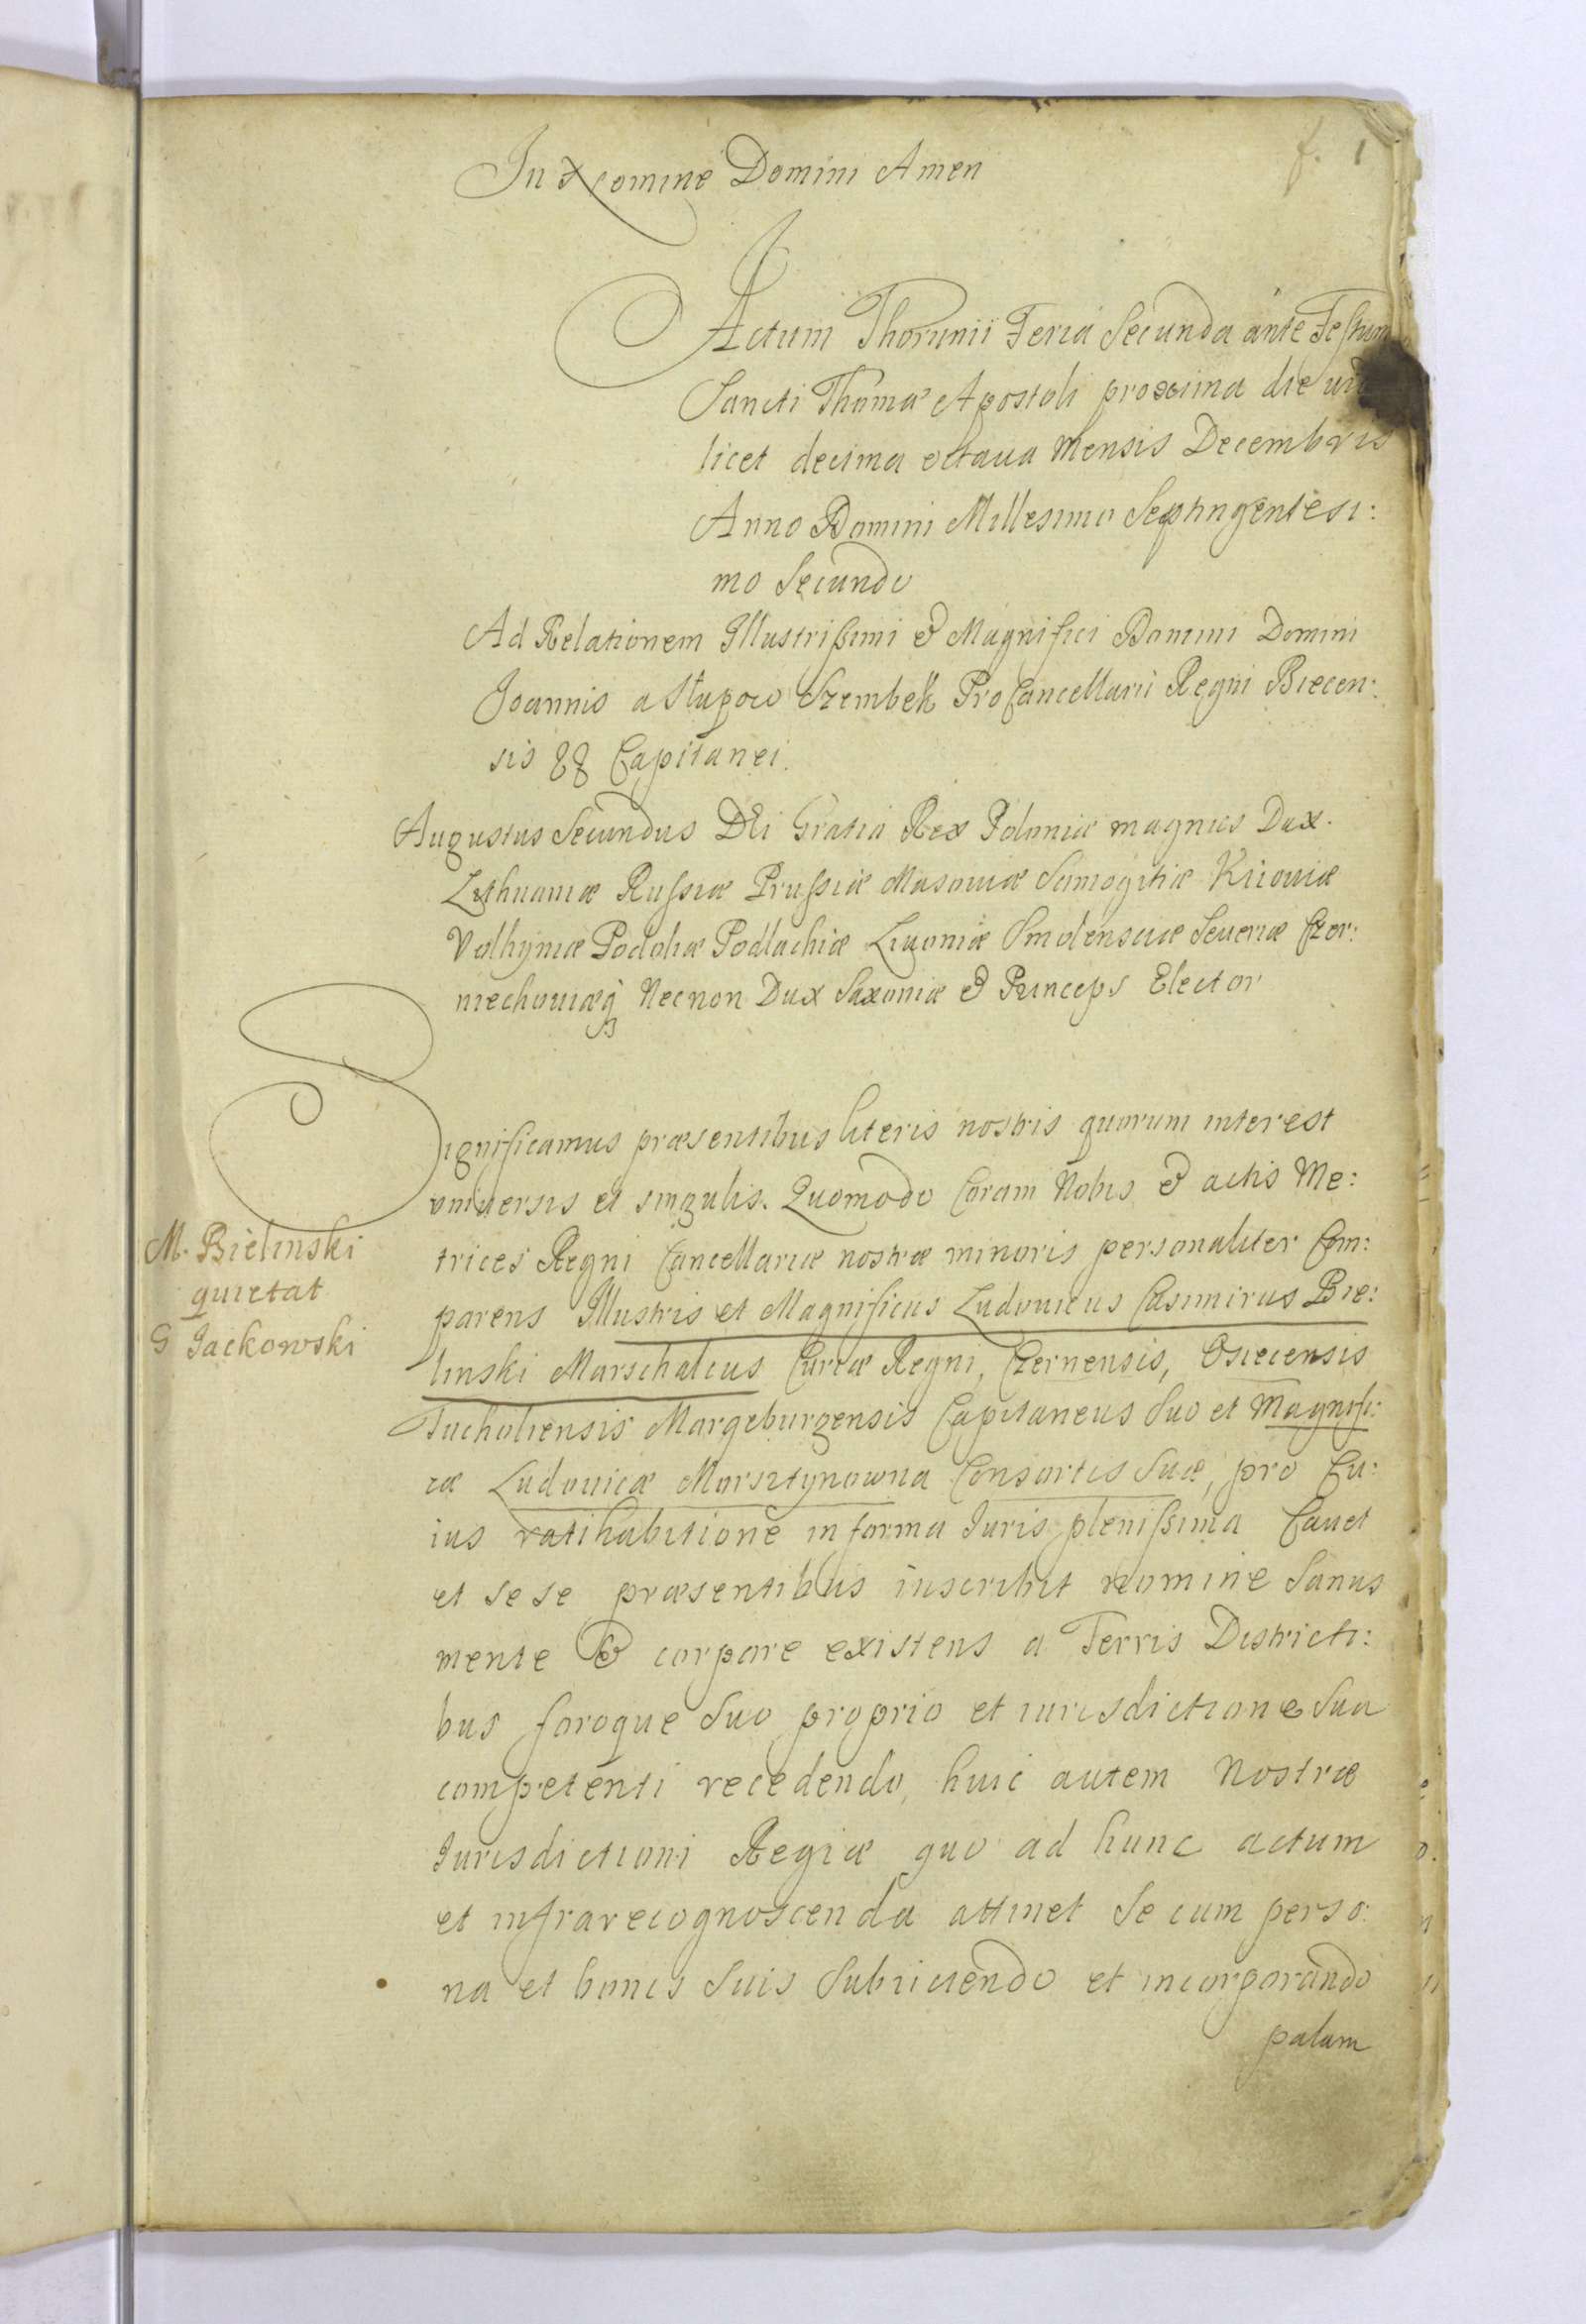 f. 1
In Nomine Domini Amen
Actum Thorunii Feria Secunda ante Festum
Sancti Thomæ Apostoli proxima die vide
licet decima octava Mensis Decembris
Anno Domini Millesimo Septingentesi:
mo Secundo
Ad Relationem Illustrißimi & Magnifici Domini Domini
Joannis a Słupow Szembek ProCancellarii Regni Biecen:
sis && Capitanei.
Augustus Secundus DEi Gratia Rex Poloniæ magnus Dux.
Lithuaniæ Rußiæ Prußiæ Masoviæ Samogitiæ Kiioviæ
Volhyniæ Podoliæ Podlachiæ Livoniæ Smolensciæ Severiæ Czer:
niechoviæq Necnon Dux Saxoniæ & Princeps Elector
Significamus præsentibus literis nostris quorum interest
vniversis et singulis. Quomodo Coram Nobis & actis Me:
trices Regni Cancellariæ nostræ minoris personaliter Com:
parens Illustris et Magnificus Ludovicus Casimirus Bie:
linski Marschalcus Curiæ Regni, Czernensis, Osiecensis
Tucholiensis Margeburgensis Capitaneus Suo et Magnifi:
cæ Ludovicæ Morsztynowna Consortis Suæ, pro Cu:
ius ratihabitione in forma Iuris plenißima Cavet
et se se præsentibus inscribit nomine Sanus
mente & corpore existens a Terris Districti:
bus foroque Suo proprio et iurisdictione Sua
competenti recedendo, huic autem Nostræ
Iurisdictioni Regiæ quo ad hunc actum
et infrarecognoscenda attinet Se cum perso:
na et bonis Suis Subiiciendo et incorporando
palam
M. Bielinski
quietat
G Jackowski